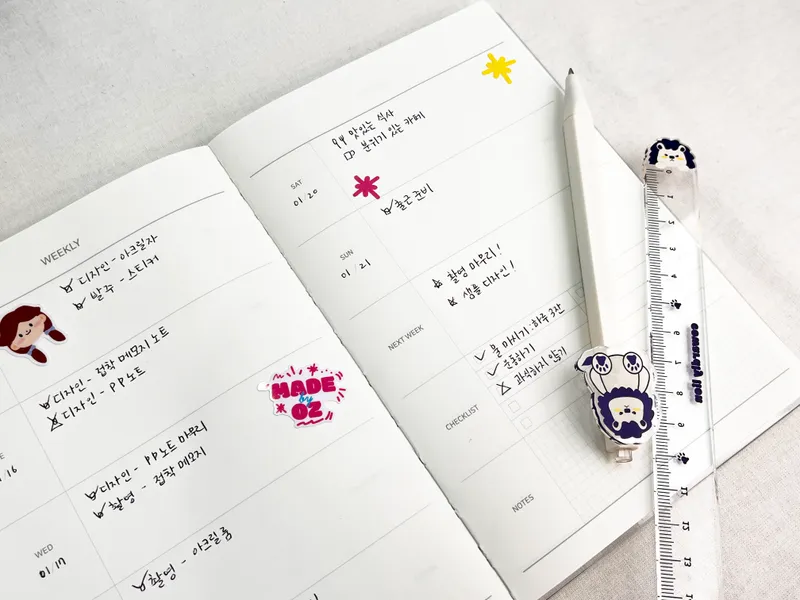 WEEKLY
디자인 - 아크릴자
발주 - 스티커
디자인 - 접착 메모지 노트
디자인 - PP노트
1/16
디자인 - PP노트 마무리
촬영 - 접착 메모지
WED
01/17
촬영 - 아크릴롱
MADE
by
OZ
맛있는 식사
분위기 있는 카페
SAT
01/20
출근 준비
SUN
01/21
촬영 마무리!
샘플 디자인!
NEXT WEEK
물 마시기 : 하루 3잔
운동하기
과식하지 않기
CHECKLIST
NOTES
0
1
2
3
4
5
6
7
8
9
11
12
13
cowardly lion